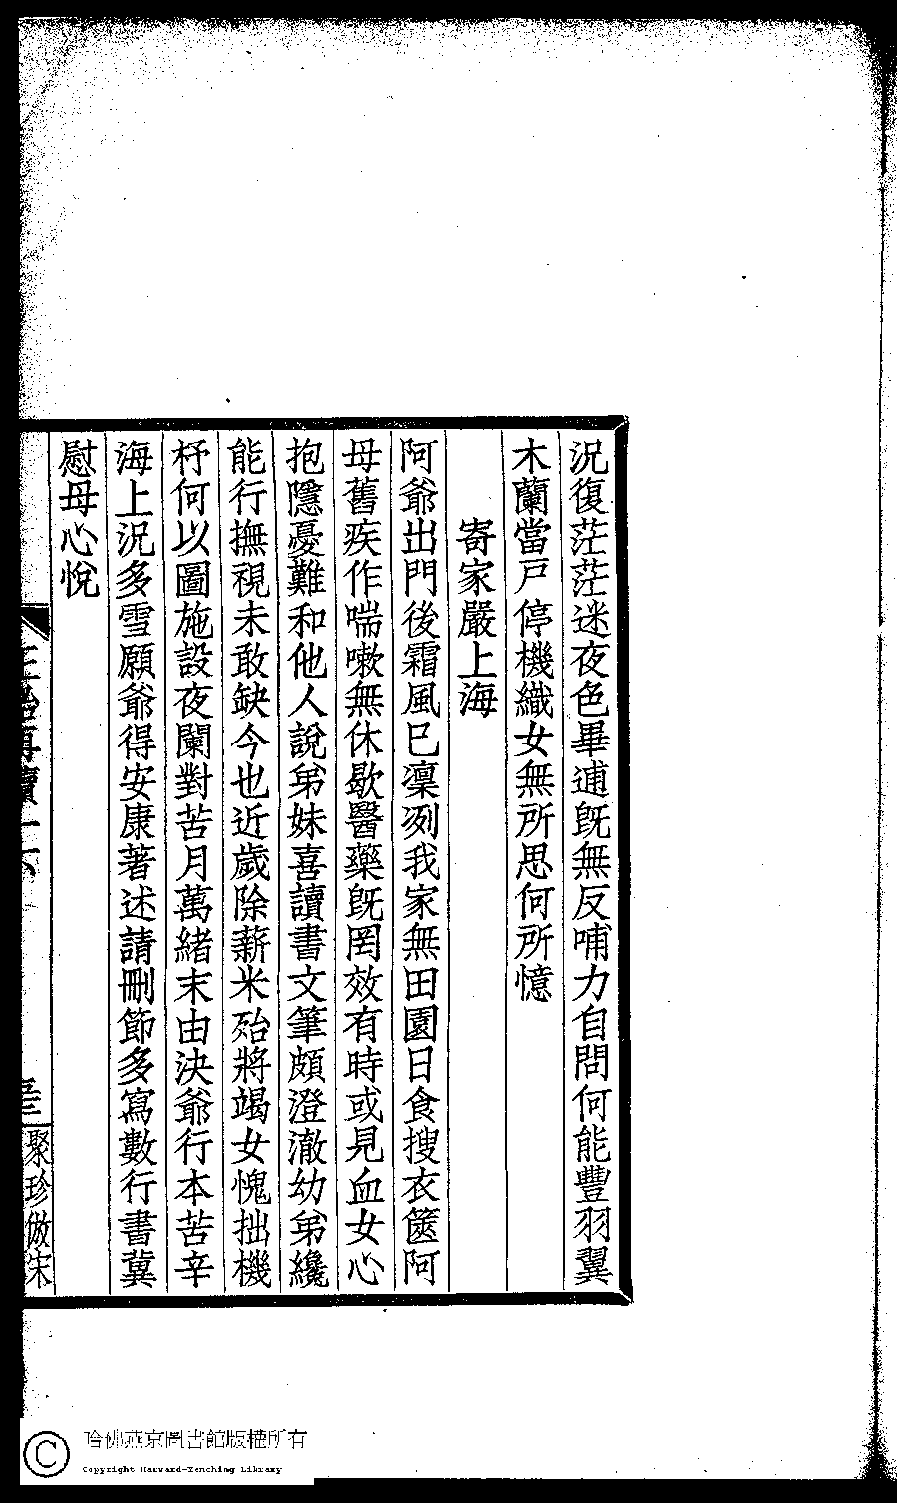 況復茫茫迷夜色畢逋旣無反哺力自問何能豐羽翼
木蘭當戸停機織女無所思何所憶
寄家嚴上海
阿爺出門後霜風已凜冽我家無田園日食搜衣篋阿
母舊疾作喘嗽無休歇醫藥旣罔效有時或見血女心
抱隱憂難和他人說弟妹喜讀書文筆頗澄澈幼弟纔
能行撫視未敢缺今也近歲除薪米殆將竭女愧拙機
杼何以圖施設夜闌對苦月萬緒末由決爺行本苦辛
海上況多雪願爺得安康著述請刪節多寫數行書冀
慰母心悅
聚珍倣宋
哈佛燕京圖書館版權所有
Copyright Harvard-Yenching Library